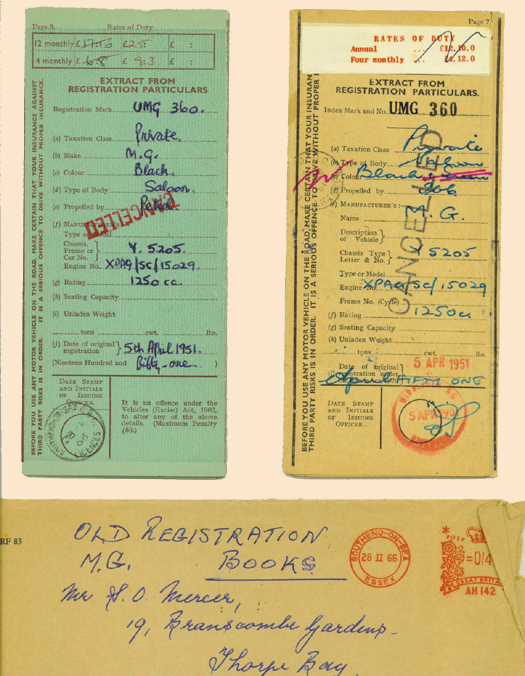 Page 8. Rates of Duty
12 monthly £17:10 £25: £ :
4 monthly £6:8 £9:3 £ :
EXTRACT FROM
REGISTRATION PARTICULARS
Registration Mark UMG 360.
(a) Taxation Class Private.
(b) Make M.G.
(c) Colour Black.
(d) Type of Body Saloon.
(e) Propelled by Petrol
CANCELLED
(f) MANUFACTURER'S
Type or Model
Chassis,
Frame or } Y. 5205.
Car No.
Engine No. XPAG/SC/15029.
(g) Rating 1250 cc.
(h) Seating Capacity
(i) Unladen Weight
tons cwt. lbs.
(j) Date of original } 5th April 1951.
registration
(Nineteen Hundred and Fifty-one.)
DATE STAMP
AND INITIALS
OF ISSUING
OFFICER.
LICENCES
It is an offence under the
Vehicles (Excise) Act, 1962,
to alter any of the above
details. (Maximum Penalty
£50.)
BEFORE YOU USE ANY MOTOR VEHICLE ON THE ROAD, MAKE CERTAIN THAT YOUR INSURANCE AGAINST
THIRD PARTY RISKS IS IN ORDER. IT IS A SERIOUS OFFENCE TO DRIVE WITHOUT PROPER INSURANCE.
Page 7.
RATES OF DUTY
Annual ... £12.10.0
Four monthly .. £4.12.0
EXTRACT FROM
REGISTRATION PARTICULARS.
Index Mark and No. UMG 360
(a) Taxation Class Private
(b) Type of Body Saloon
(c) Colour Black
(d) Propelled by
(e) MANUFACTURER'S:
Name M.G.
Description
of Vehicle }
Chassis Type
Letter & No. } Y 5205
Type or Model
Engine No. XPAG/SC/15029
Frame No. (Cycle)
(f) Rating 1250cc
(g) Seating Capacity
(h) Unladen Weight
tons cwt. lbs.
Date of original } 5 APR 1951
registration
April FIFTY ONE
DATE STAMP
AND INITIALS
OF ISSUING
OFFICER.
5 APR 195
CANCELLED
BEFORE YOU USE ANY MOTOR VEHICLE ON THE ROAD, MAKE CERTAIN THAT YOUR INSURAN
THIRD PARTY RISKS IS IN ORDER. IT IS A SERIOUS OFFENCE TO DRIVE WITHOUT PROPER
RF 83
OLD REGISTRATION
M.G. BOOKS
SOUTHEND-ON-SEA
26 II 66
ESSEX
POST
=0/4
GREAT BRITAIN
AH 142
Mr H. O. Mercer,
19, Branscombe Gardens
Thorpe Bay